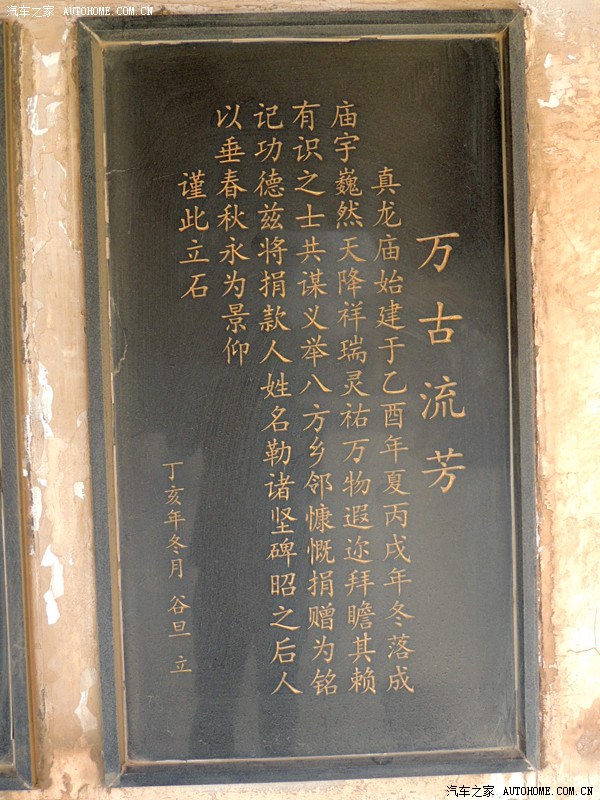 汽车之家 AUTOHOME.COM.CN
万古流芳
真龙庙始建于乙酉年夏丙戌年冬落成
庙宇巍然天降祥瑞灵祐万物遐迩拜瞻其赖
有识之士共谋义举八方乡邻慷慨捐赠为铭
记功德兹将捐款人姓名勒诸坚碑昭之后人
以垂春秋永为景仰
谨此立石
丁亥年冬月 谷旦 立
汽车之家 AUTOHOME.COM.CN